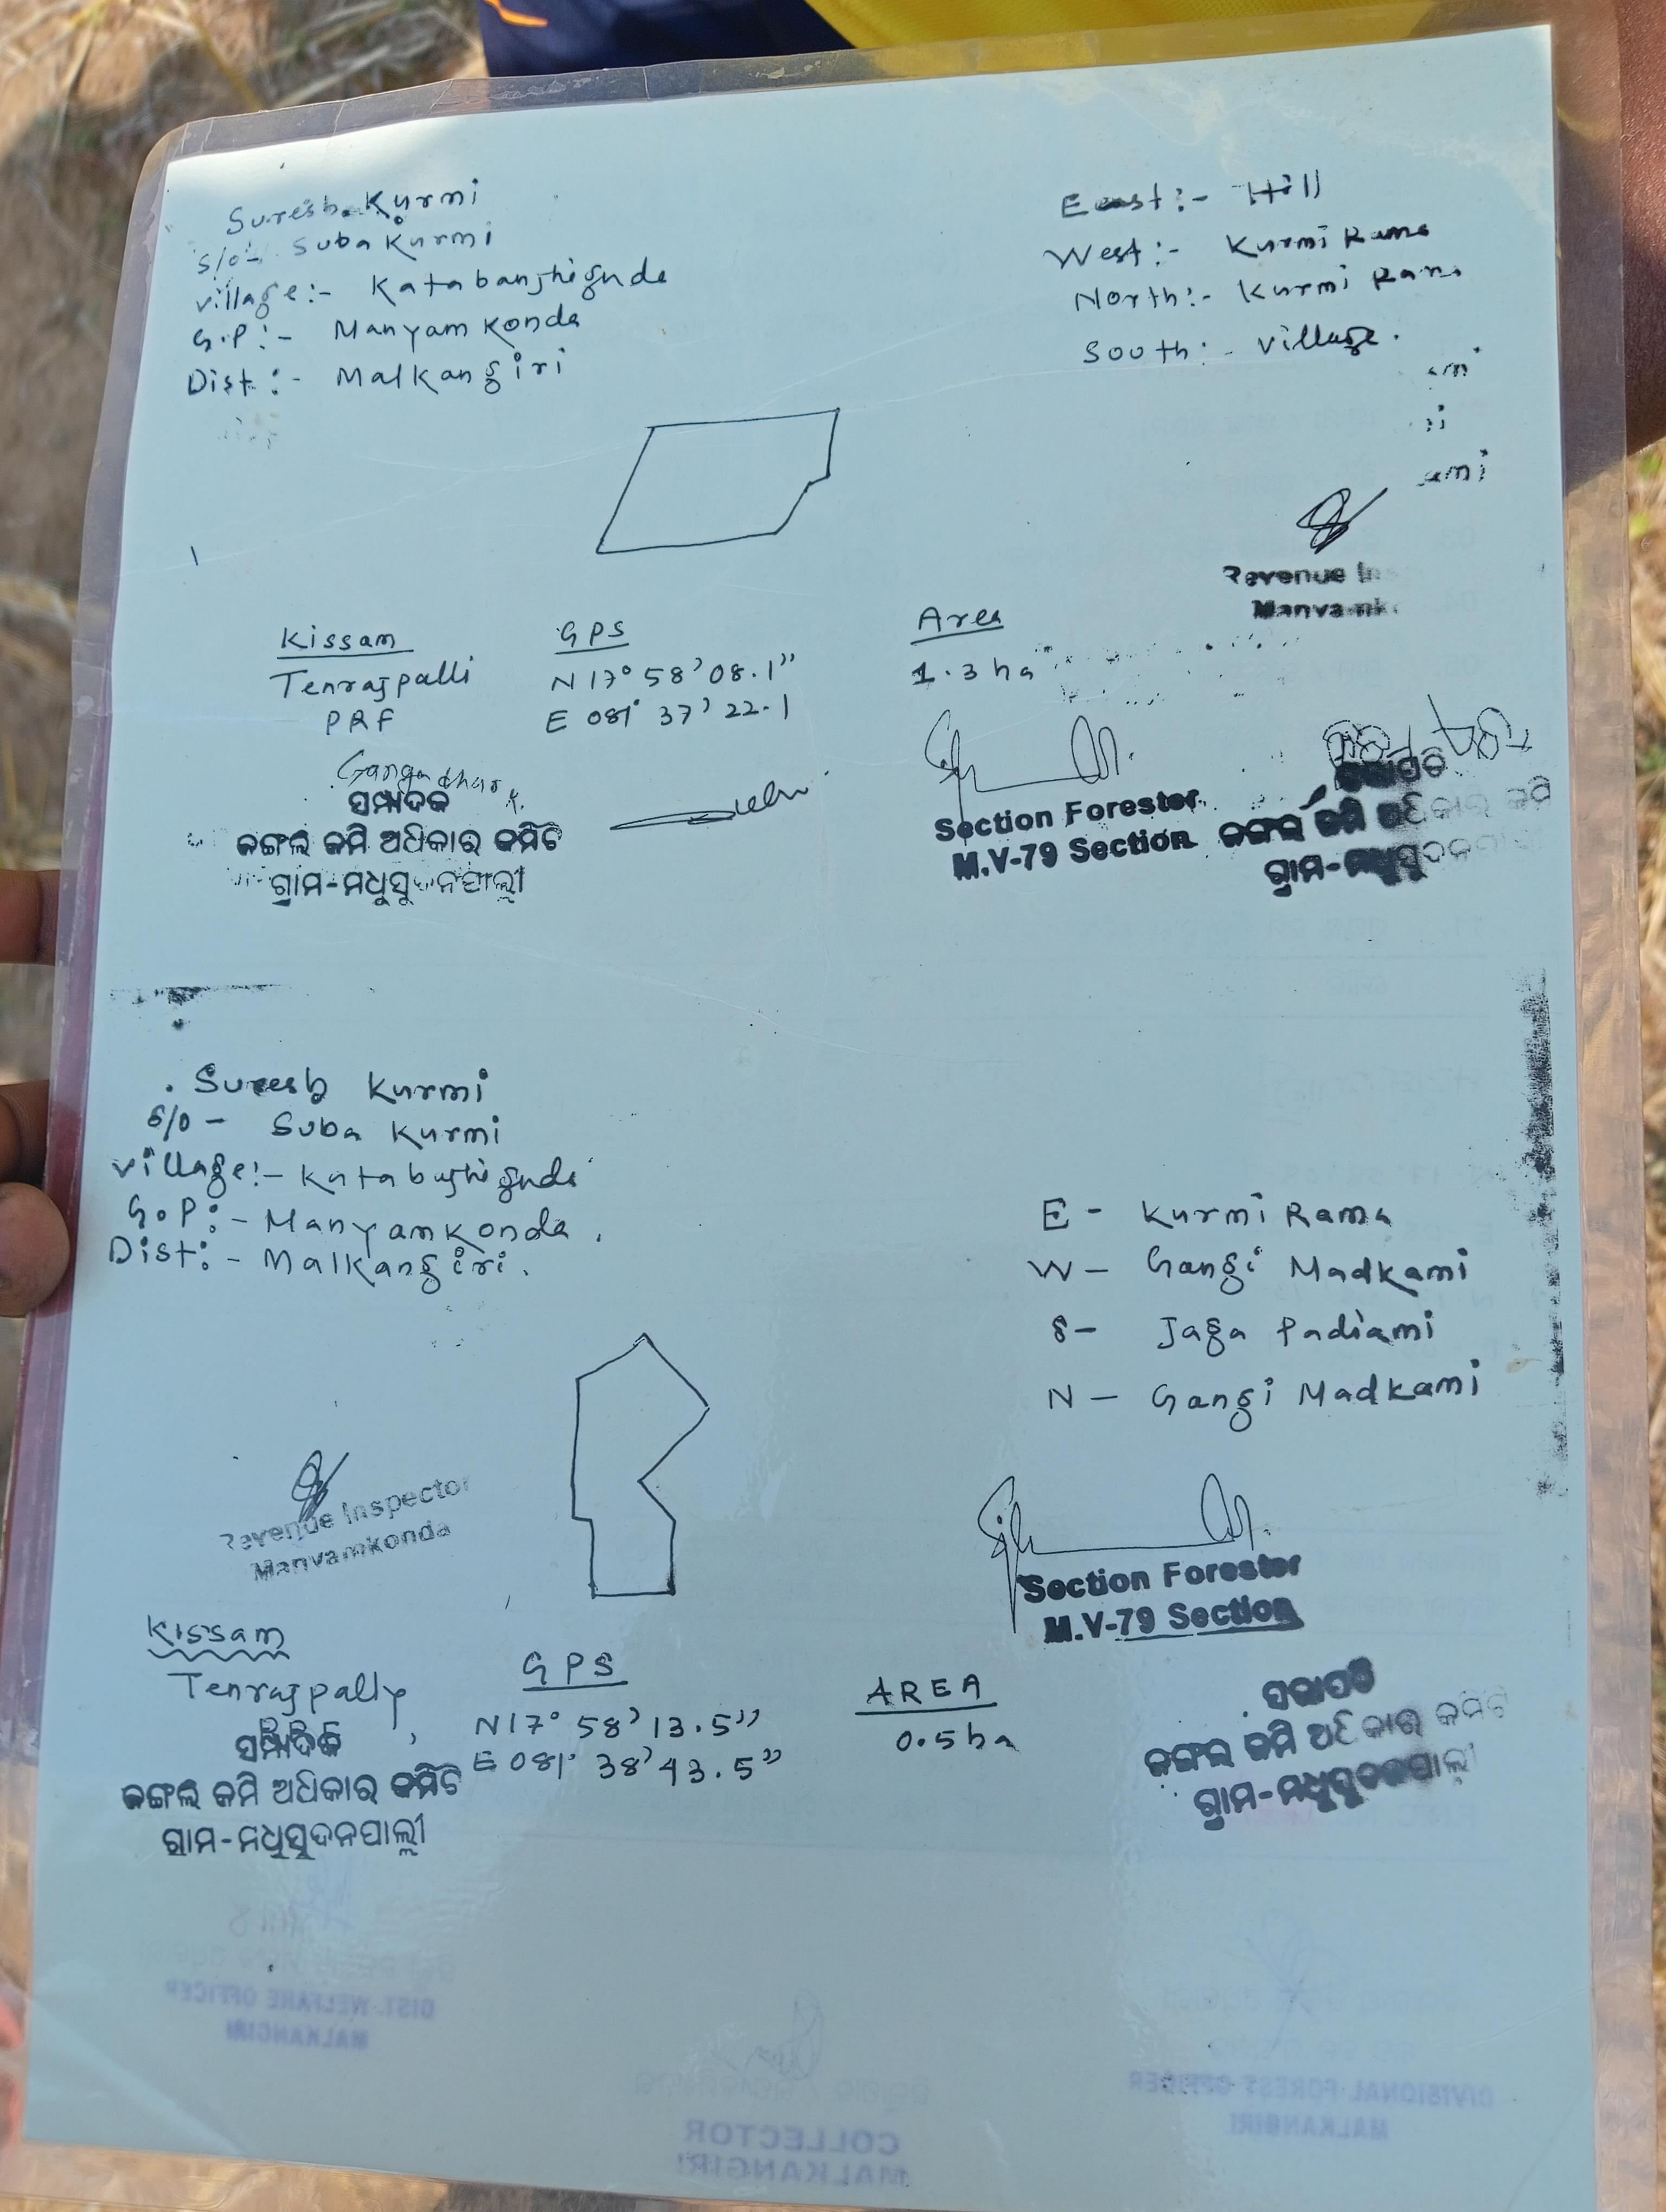 Suresh Kurmi
S/o- Suba Kurmi
village:- Katabanjhiguda
G.P:- Manyam Konda
Dist:- Malkangiri
East:- Hill
West:- Kurmi Rama
North:- Kurmi Rama
South:- village.
ami
Revenue In
Manyamk
Kissam
Tenrajpalli
PRF
GPS
N 17° 58' 08.1"
E 081° 37' 22.1
Area
1.3 ha
Gangadhar
ସମ୍ପାଦକ
ଜଙ୍ଗଲ ଜମି ଅଧିକାର କମିଟି
ଗ୍ରାମ-ମଧୁସୁଦନପାଲ୍ଲୀ
Section Forester
M.V-79 Section
ସଭାପତି
ଜଙ୍ଗଲ ଜମି ଅଧିକାର କମି
ଗ୍ରାମ-ମଧୁସୁଦନ
Suresh Kurmi
S/o - Suba Kurmi
village:- Katabujhiguda
G.P:- Manyamkonda.
Dist:- Malkangiri.
E - Kurmi Rama
W - Gangi Madkami
S - Jaga Padiami
N - Gangi Madkami
Revenue Inspector
Manyamkonda
Section Forester
M.V-79 Section
Kissam
Tenrajpally
PRF
GPS
N17° 58' 13.5"
E 081° 38' 43.5"
AREA
0.5 ha
ସମ୍ପାଦକ
ଜଙ୍ଗଲ ଜମି ଅଧିକାର କମିଟି
ଗ୍ରାମ-ମଧୁସୁଦନପାଲ୍ଲୀ
ସଭାପତି
ଜଙ୍ଗଲ ଜମି ଅଧିକାର କମିଟି
ଗ୍ରାମ-ମଧୁସୁଦନପାଲ୍ଲୀ
DIST. WELFARE OFFICER
MALKANGIRI
COLLECTOR
MALKANGIRI
DIVISIONAL FOREST OFFICER
MALKANGIRI